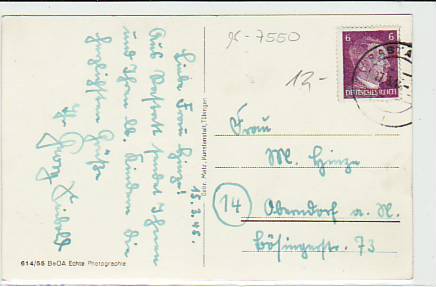 Liebe Frau Hinze!
15.3.45.
Aus Rastatt sendet Ihnen
und Ihren lb. Kindern die
herzlichsten Grüße
Ihr Georg
Gebr. Metz, Kunstanstalt, Tübingen
614/55 BeDA Echte Photographie
gc-7550
12,-
6 6
DEUTSCHES REICH
RASTA
Frau
M. Hinze
14 Oberndorf a. N.
Bösingerstr. 73